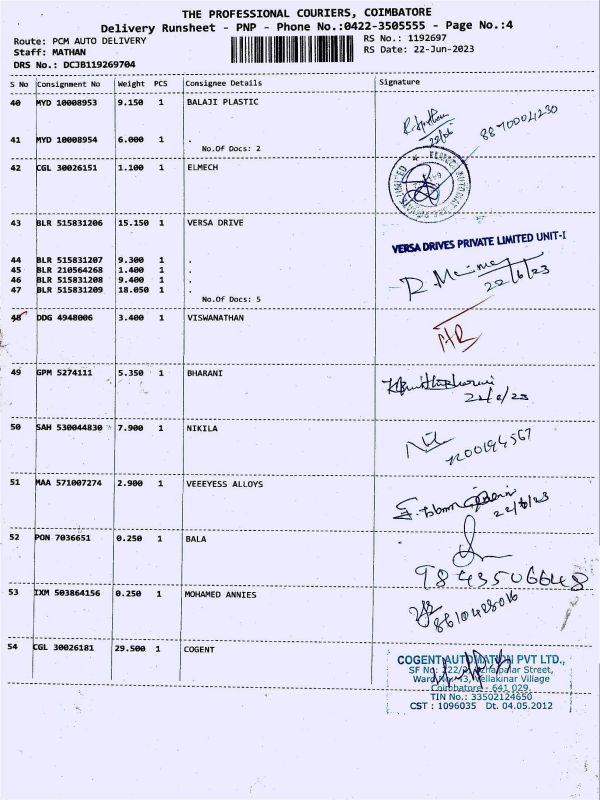 THE PROFESSIONAL COURIERS, COIMBATORE
Delivery Runsheet - PNP - Phone No.:0422-3505555 - Page No.:4
Route: PCM AUTO DELIVERY
RS No.: 1192697
Staff: MATHAN
RS Date: 22-Jun-2023
DRS No.: DCJB119269704
S No Consignment No Weight PCS Consignee Details Signature
40 MYD 10008953 9.150 1 BALAJI PLASTIC
8870004230
41 MYD 10008954 6.000 1 .
No.Of Docs: 2
42 CGL 30026151 1.100 1 ELMECH
43 BLR 515831206 15.150 1 VERSA DRIVE
VERSA DRIVES PRIVATE LIMITED UNIT-I
44 BLR 515831207 9.300 1 .
45 BLR 210564268 1.400 1 .
46 BLR 515831208 9.400 1 .
47 BLR 515831209 18.050 1 .
22/6/23
No.Of Docs: 5
48 DDG 4948006 3.400 1 VISWANATHAN
49 GPM 5274111 5.350 1 BHARANI
22/6/23
50 SAH 530044830 7.900 1 NIKILA
51 MAA 571007274 2.900 1 VEEEYESS ALLOYS
22/6/23
52 PON 7036651 0.250 1 BALA
9843506648
53 IXM 503864156 0.250 1 MOHAMED ANNIES
8610428016
54 CGL 30026181 29.500 1 COGENT
COGENT AUTOMATION PVT LTD.,
Street,
Vellakinar Village
Coimbatore - 641 029.
TIN No.: 33502124650
CST : 1096035 Dt. 04.05.2012